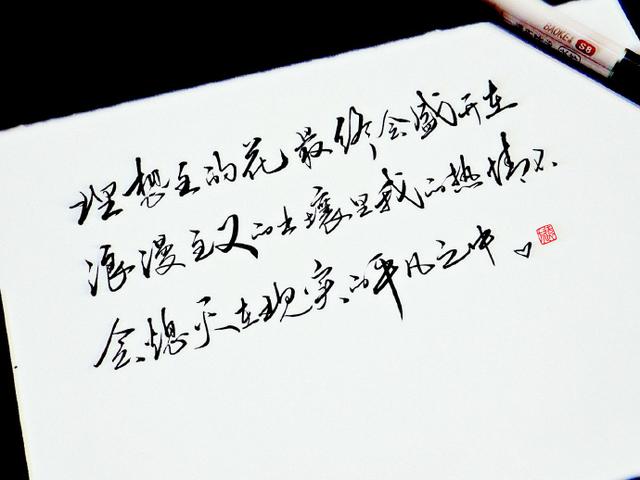 BAOKE
SB
理想主的花最终会盛开在
浪漫主义的土壤里我的热情不
会熄灭在现实的平凡之中